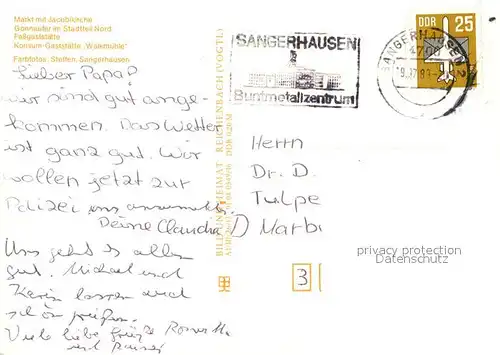 Markt mit Jacobikirche
Gonnaufer im Stadtteil Nord
Faßgaststätte
Konsum-Gaststätte „Walkmühle"
Farbfotos: Steffen, Sangerhausen
SANGERHAUSEN
Buntmetallzentrum
SANGERHAUSEN 2
4700
DDR 25
Lieber Papa!
Wir sind gut ange-
kommen. Das Wetter
ist ganz gut. Wir
wollen jetzt zur
Polizei uns anzumelden.
Deine Claudia
Uns geht es allen
gut. Michael und
Karin lassen auch
schön grüßen.
Viele liebe Grüße
und
BILD UND HEIMAT REICHENBACH (VOGTL)
DDR 0,20 M
Herrn
Dr. D.
Tulpe
D Marb
3
privacy protection
Datenschutz